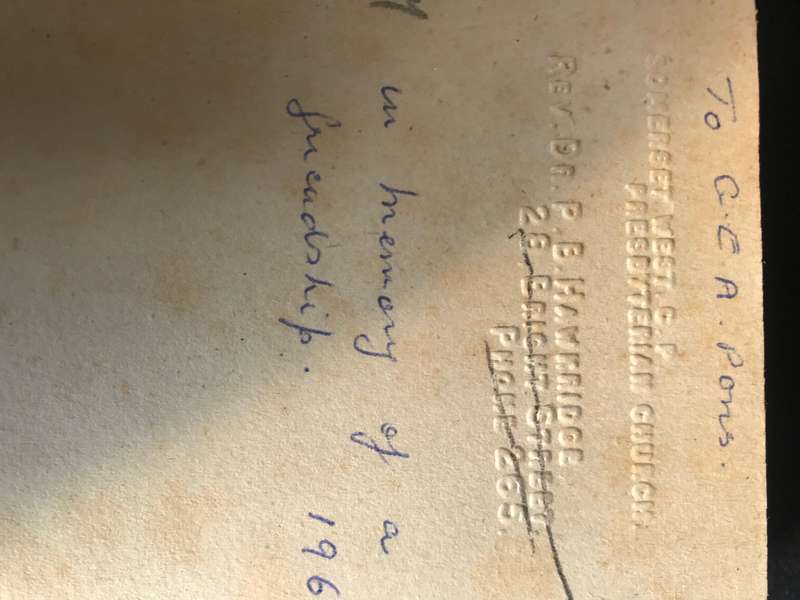 To G. E A. Pons.
SOMERSET WEST, C.P.
PRESBYTERIAN CHURCH.
REV. DR. P. B. HAWKRIDGE
28, BRIGHT STREET.
PHONE 2665.
in memory of a
friendship. 196